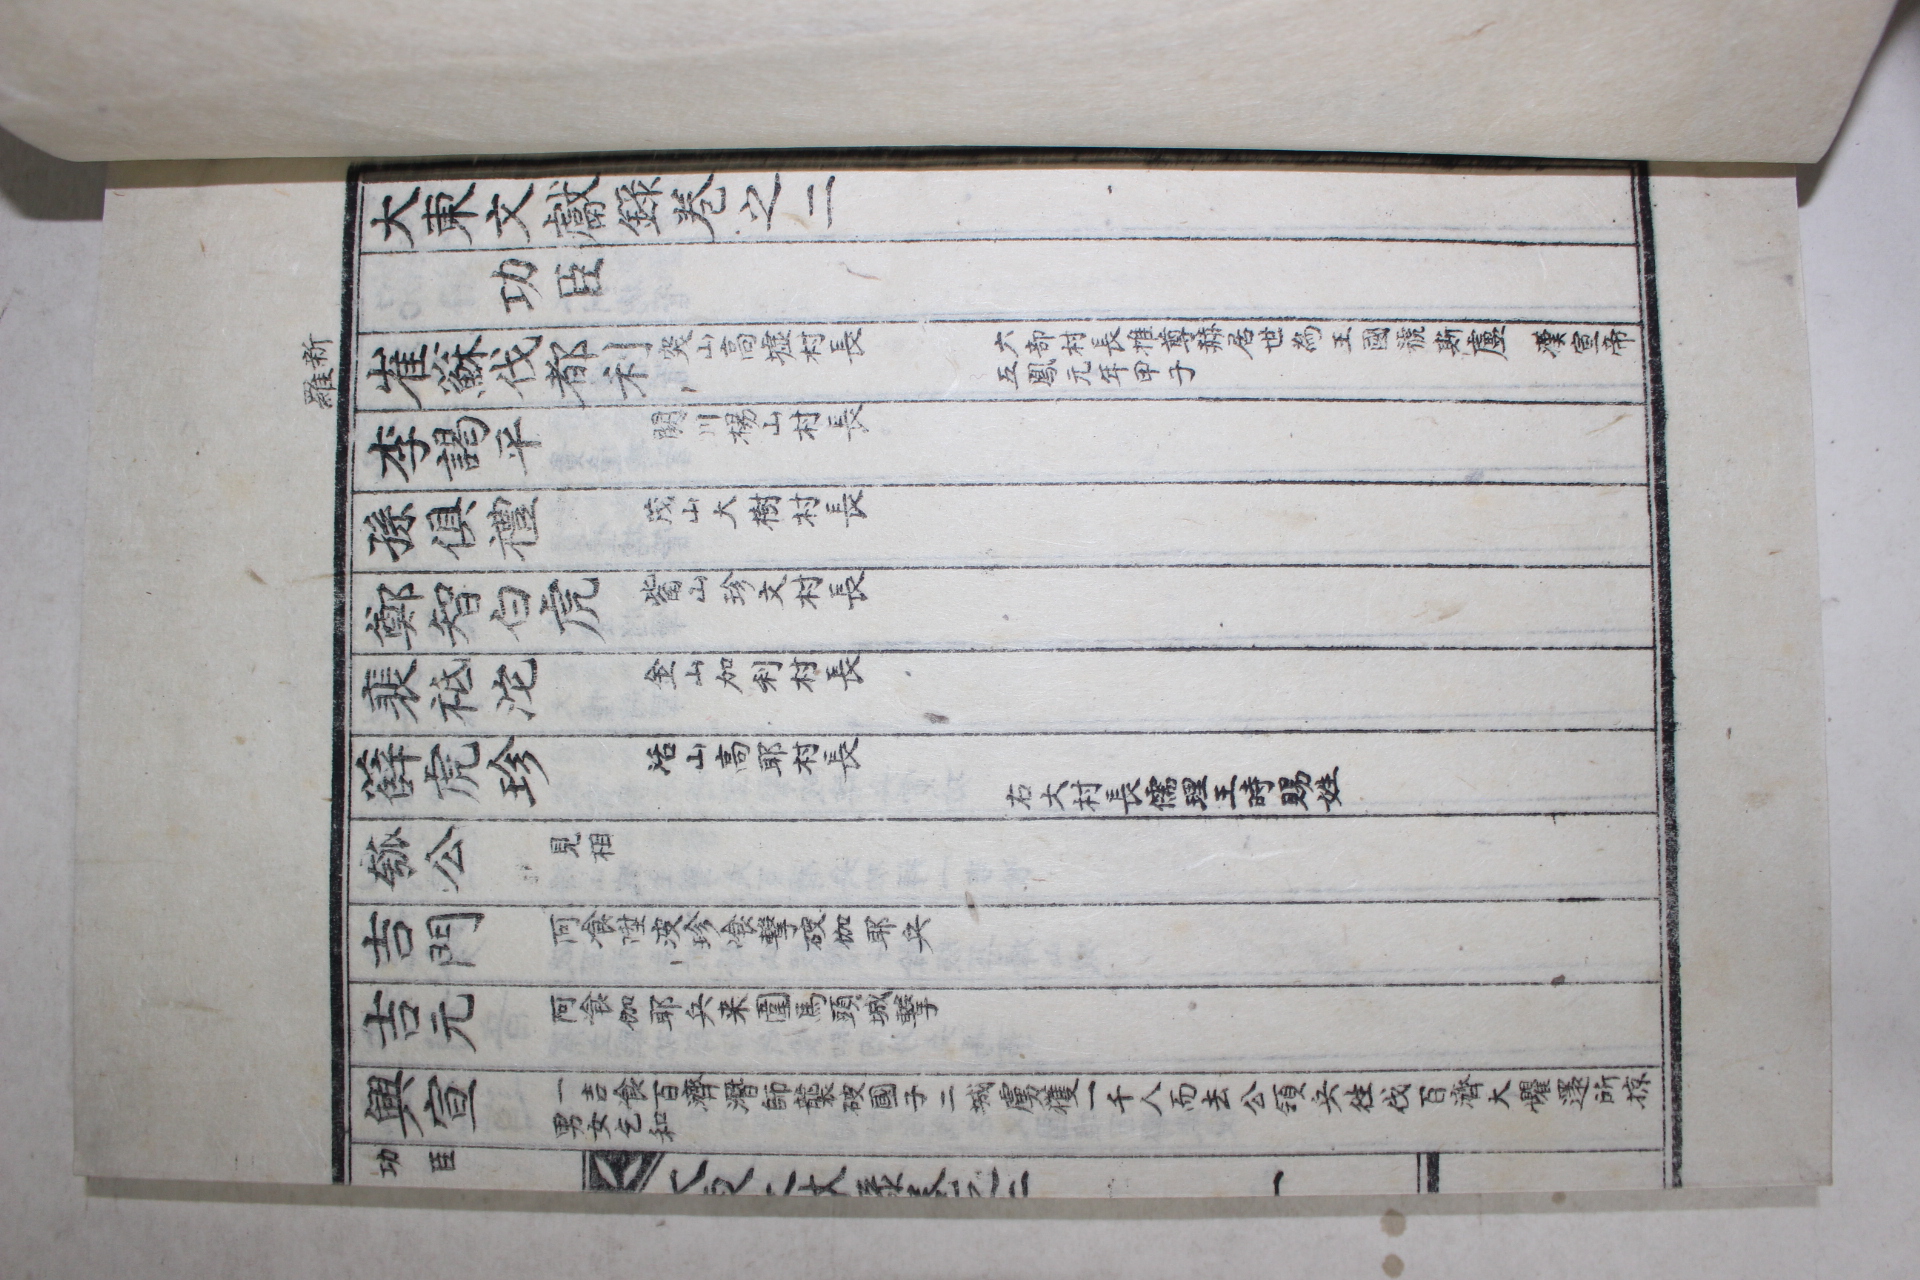 大東文獻錄卷之二
功臣
新羅
崔蘇伐都利 突山高墟村長 六部村長推尊赫居世為王國號斯盧 漢宣帝
五鳳元年甲子
李謁平 閼川楊山村長
孫俱禮 茂山大樹村長
鄭智白虎 觜山珍文村長
裴祗沱 金山加利村長
薛虎珍 活山高耶村長
右六村長儒理王時賜姓
瓠公 見相
吉門 阿飡陞波珍飡擊破伽耶兵
吉元 阿飡伽耶兵来圍馬頭城擊
興宣 一吉飡百濟潛師襲破國子二城虜獲一千人而去公領兵往伐百濟大懼還所掠
男女乞和
功臣
大東文獻錄卷之二
一